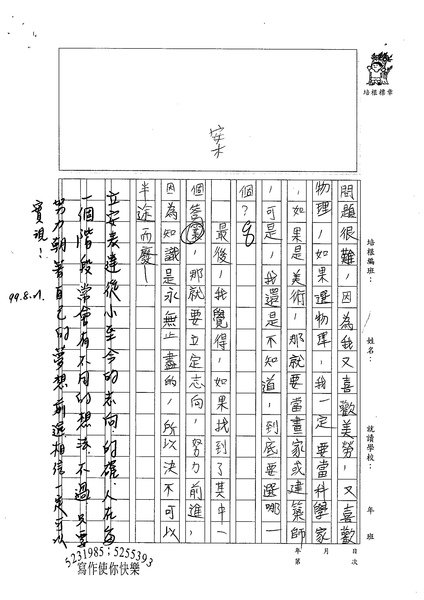 案
培根標章
培根編班：
姓名：
就讀學校：
年
班
年
月
日
第
次
問題很難，因為我又喜歡美勞，又喜歡
物理，如果選物理，我一定要當科學家
，如果是美術，那就要當畫家或建築師
，可是，我還是不知道，到底要選哪一
個？
最後，我覺得，如果找到了其中一
個答案，那就要立定志向，努力前進，
因為知識是永無止盡的，所以決不可以
半途而廢。
立安表達從小至今的志向，的確，人在每
一個階段常會有不同的想法，不過，只要
努力朝著自己的夢想前進，相信一定可以
實現！
99.8.
5231985；5255393
寫作使你快樂